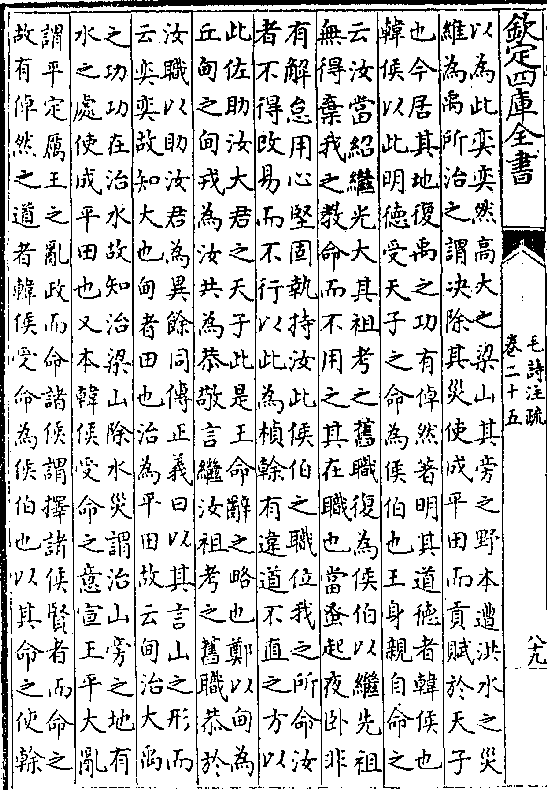 欽定四庫全書
毛詩注疏
卷二十五
以為此奕奕然高大之梁山其旁之野本遭洪水之災
維為禹所治之謂决除其災使成平田而貢賦於天子
也今居其地復禹之功有倬然著明其道徳者韓侯也
韓侯以此明徳受天子之命為侯伯也王身親自命之
云汝當紹繼光大其祖考之舊職復為侯伯以繼先祖
無得棄我之教命而不用之其在職也當蚤起夜卧非
有解怠用心堅固執持汝此侯伯之職位我之所命汝
者不得改易而不行以此為楨榦有違道不直之方以
此佐助汝大君之天子此是王命辭之略也鄭以甸為
丘甸之甸戎為汝共為恭敬言繼汝祖考之舊職恭於
汝職以助汝君為異餘同傳正義曰以其言山之形而
云奕奕故知大也甸者田也治為平田故云甸治大禹
之功功在治水故知治梁山除水災謂治山旁之地有
水之處使成平田也又本韓侯受命之意宣王平大亂
謂平定厲王之亂政而命諸侯謂擇諸侯賢者而命之
故有倬然之道者韓侯受命為侯伯也以其命之使榦